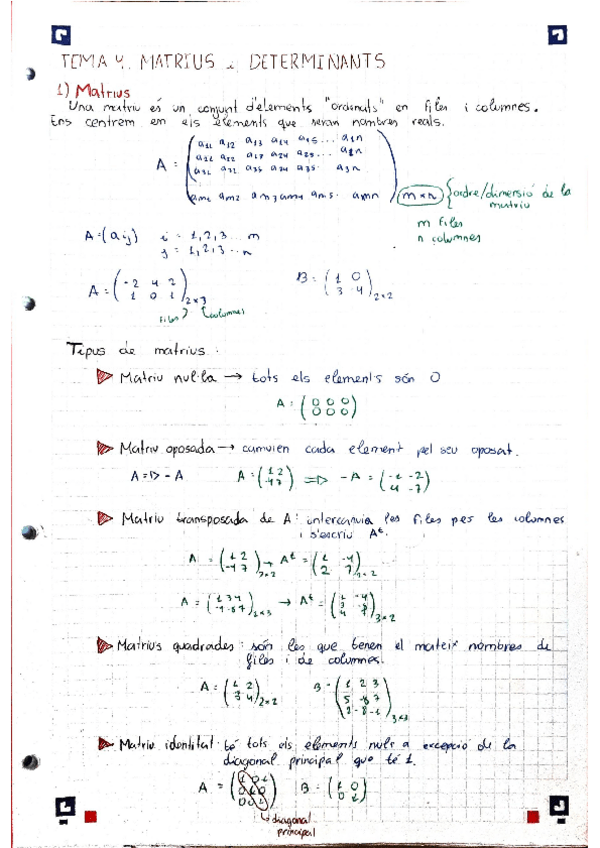 TEMA 4. MATRIUS i DETERMINANTS
1) Matrius
Una matriu és un conjunt d'elements "ordenats" en files i columnes.
Ens centrem em els elements que seran nombres reals.
A = ( a11 a12 a13 a14 a15 ... a1n
a31 a32 a34 a35 a3n
am1 am2 am3 am4 am5 ... amn )
m×n { ordre/dimensió de la matriu
m files
n columnes
A = (aij) i = 1,2,3 ... m
j = 1,2,3 ... n
A = ( -2 4 2
1 0 1 ) 2×3
B = ( 1 0
3 -4 ) 2×2
files columnes
Tipus de matrius:
Matriu nul·la → tots els elements són 0
A = ( 0 0 0
0 0 0 )
Matriu oposada → camvien cada element pel seu oposat.
A => -A A = ( 1 2
-4 7 ) => -A = ( -1 -2
4 -7 )
Matriu transposada de A: intercanvia les files per les columnes
i s'escriu A^t.
A = ( 1 2
-4 7 ) 2×2 → A^t = ( 1 -4
2 7 ) 2×2
A = ( 1 3 4
) 2×3 → A^t = ( 1 -4
3
4 ) 3×2
Matrius quadrades: són les que tenen el mateix nombres de
files i de columnes.
A = ( 1 2
3 4 ) 2×2
B = ( 1 2 3
5 -8 7
2 -8 -1 ) 3×3
Matriu identitat: té tots els elements nuls a excepció de la
diagonal principal que té 1.
A = B = ( 1 0
0 1 )
diagonal
principal